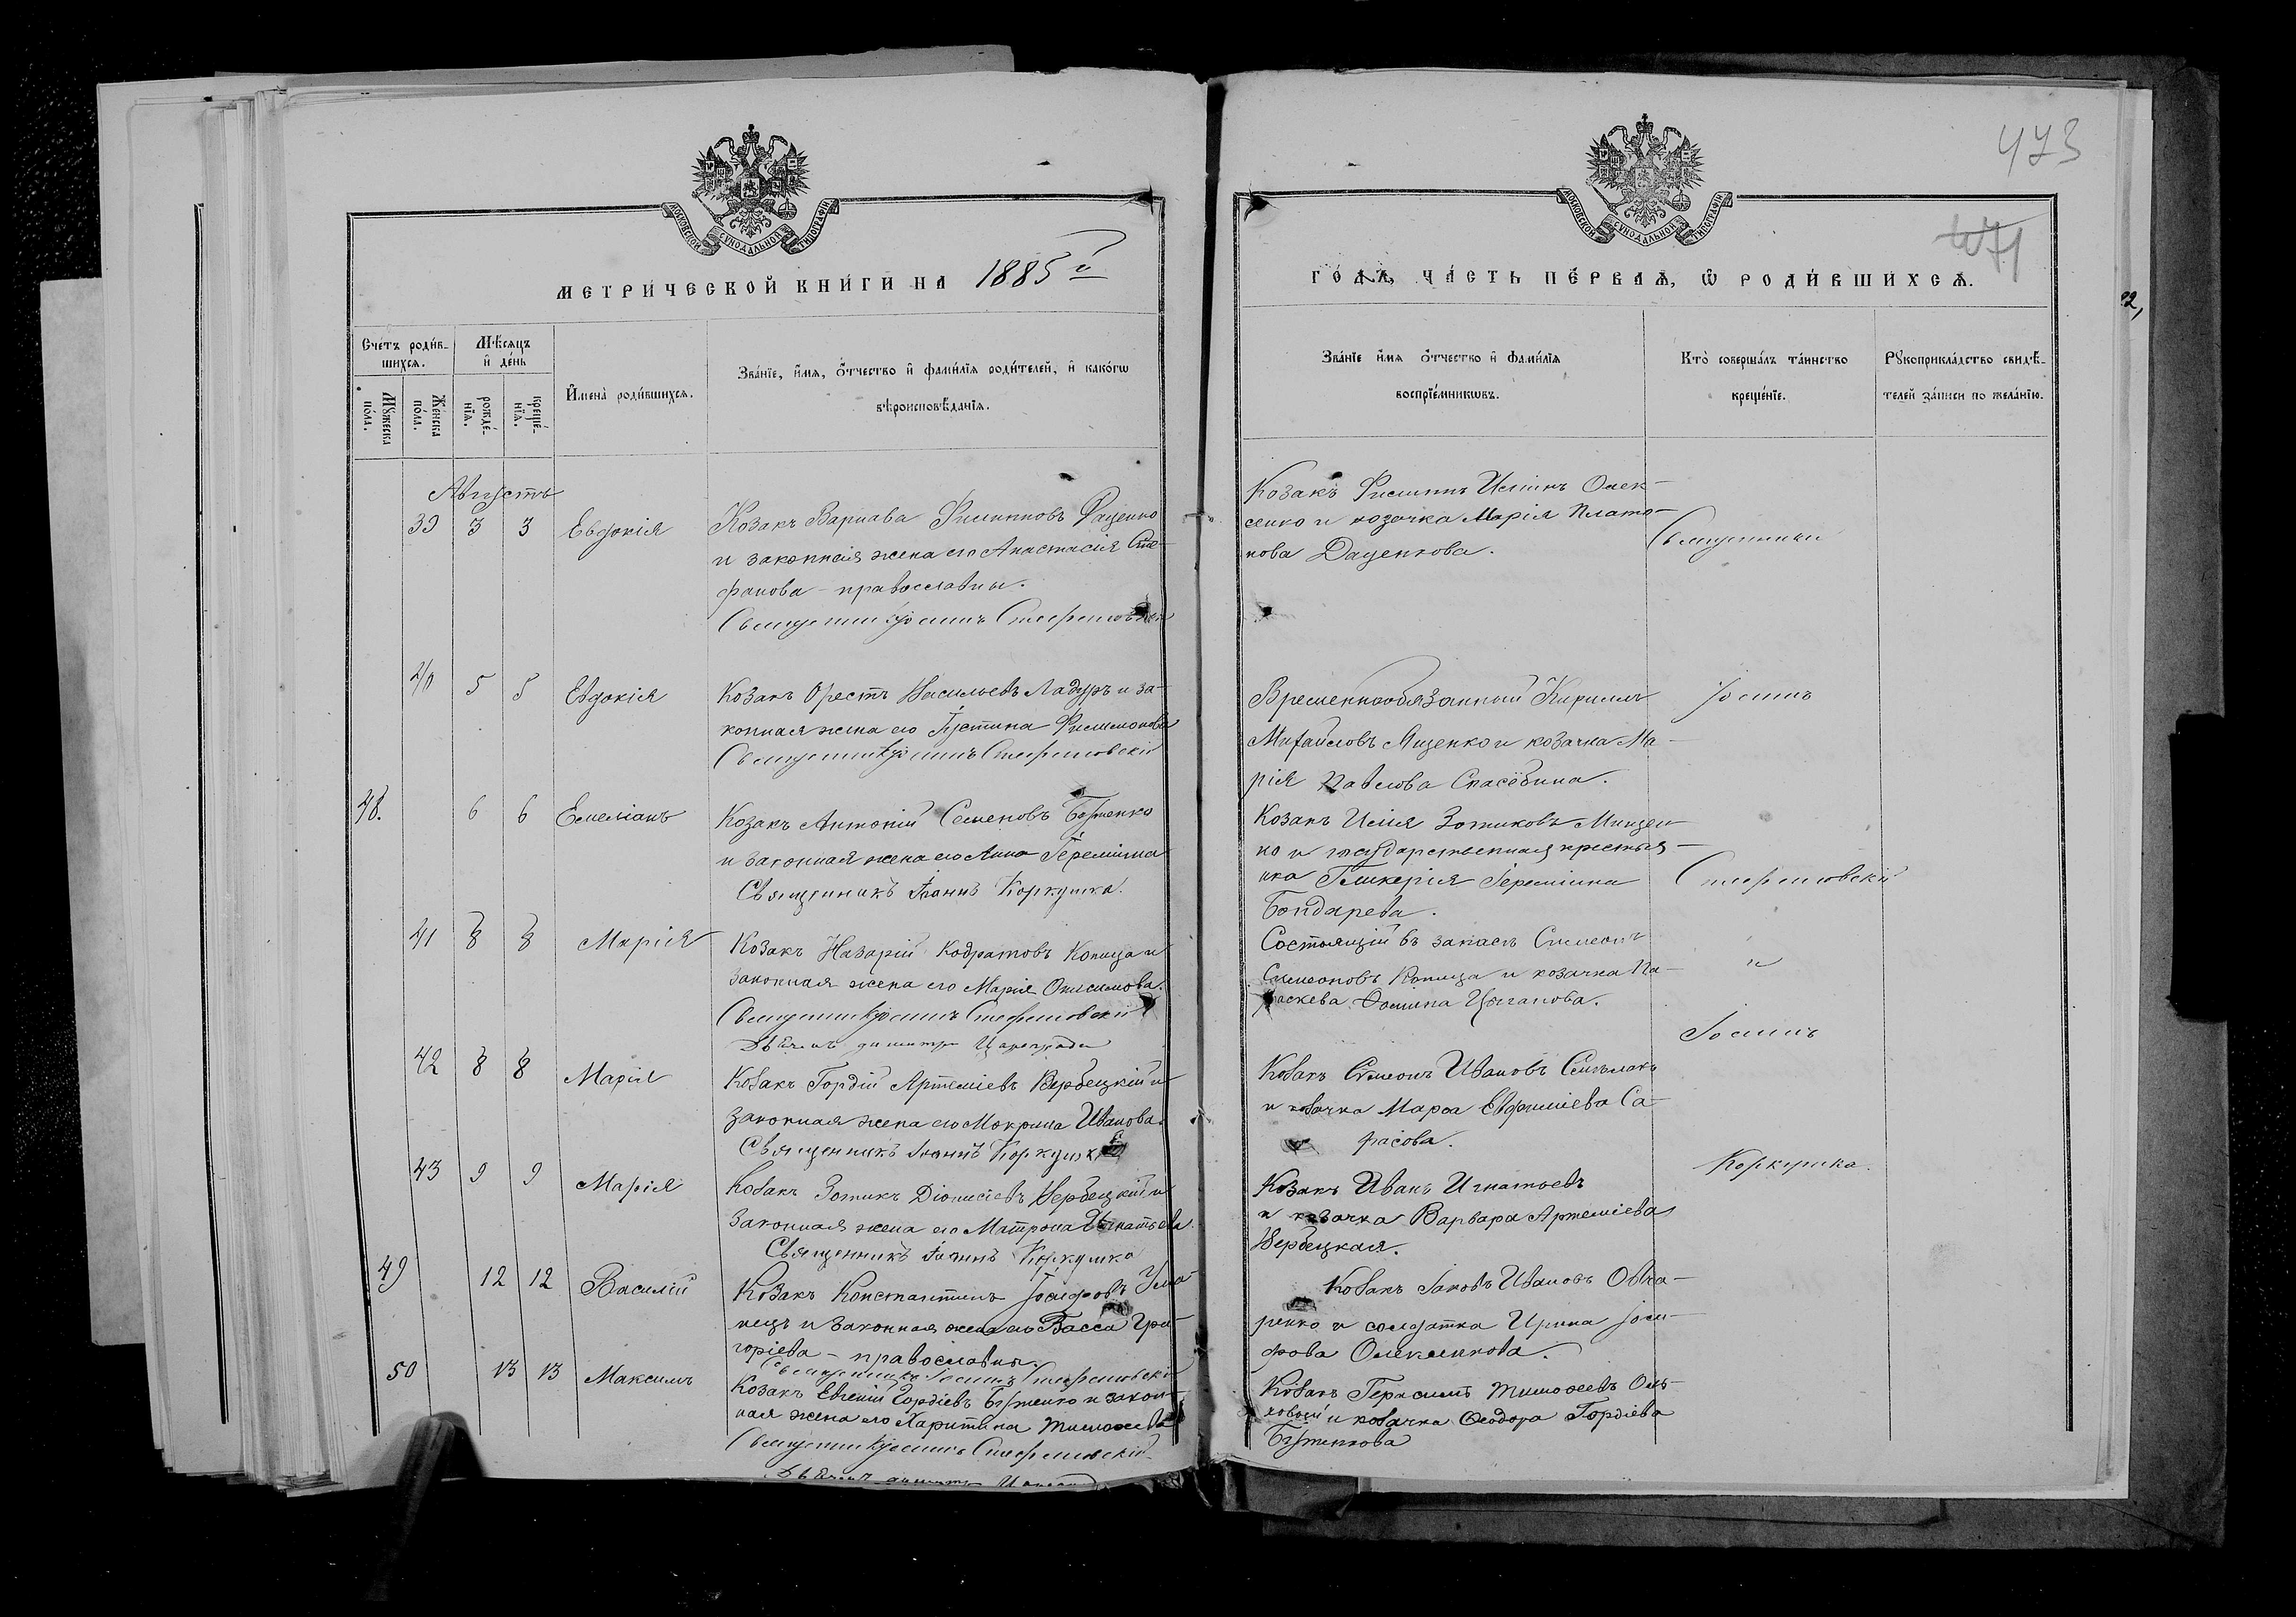 473
471
МОСКОВСКОЙ СѴНОДАЛЬНОЙ ТИПОГРАФІИ
МОСКОВСКОЙ СѴНОДАЛЬНОЙ ТИПОГРАФІИ
МЕТРИ́ЧЕСКОЙ КНИ́ГИ НА 1885 й
ГО́ДА, ЧА́СТЬ ПЕ́РВАѦ, Ѿ РОДИ́ВШИХСѦ.
Сче́тъ роди́в-
шихсѧ.
Мꙋжеска по́ла.
Же́нска по́ла.
Мѣ́сѧцъ
и҆ де́нь
рожде́-
нїѧ.
креще́-
нїѧ.
И҆мена̀ роди́вшихсѧ.
Зва́нїе, и҆́мѧ, ѻ҆́тчество и҆ фами́лїѧ роди́телей, и҆ како́гѡ
вѣроисповѣ́данїѧ.
Зва́нїе и҆́мѧ ѻ҆́тчество и҆ фами́лїѧ
воспрїе́мникѡвъ.
Кто̀ соверша́лъ та́инство
креще́нїе.
Рꙋкоприкла́дство свидѣ́-
телей за́писи по жела́нїю.
Августъ
39 3 3 Евдокія
Козакъ Варнава Филипповъ Даценко
и законная жена его Анастасія Сте-
фанова - православны.
Священникъ Іоаннъ Стефановскій
Козакъ Филиппъ Олек-
сенко и козачка Марія Плато-
нова Даценкова.
Священники
40 5 5 Евдокія
Козакъ Орестъ Васильевъ Ладуръ и за-
конная жена его Іустина Филимонова
Священникъ Іоаннъ Стефановскій
Временнообязанный Кириллъ
Михайловъ Яценко и козачка Ма-
рія Павлова Спасёбина.
Іоаннъ
48. 6 6 Емеліанъ
Козакъ Антоній Семеновъ Бутенко
и законная жена его Анна Іереміина
Священникъ Іоаннъ Коркушка.
Козакъ Илія Зотиковъ Мищен-
ко и государственная крестья-
нка Гликерія Іереміина
Бондарева.
Стефановскій
41 8 8 Марія
Козакъ Назарій Кодратовъ Копица и
законная жена его Марія Онисимова.
Священникъ Іоаннъ Стефановскій
Дьячекъ Димитр
Состоящій въ запасѣ Симеонъ
Симеоновъ Копица и козачка Па-
раскева Фомина Цыганова.
и
Іоаннъ
42 8 8 Марія
Козакъ Гордій Артеміевъ Вербецкій и
законная жена его Мокрина Иванова
Священникъ Іоаннъ Коркушка
Козакъ Симеонъ Ивановъ
и козачка Марѳа Евфиміева Са-
расова.
Коркушка.
43 9 9 Марія
Козакъ Зотикъ Діонисіевъ Вербецкій и
законная жена его Матрона Игнатьева.
Священникъ Іоаннъ Коркушка
Козакъ Иванъ Игнатьевъ
и козачка Варвара Артеміева
Вербецкая.
49 12 12 Василій
Козакъ Константинъ Іосифовъ Ума-
нецъ и законная жена его Васса Гри-
горіева - православны.
Священникъ Іоаннъ Стефановскій
Козакъ Іаковъ Ивановъ Овча-
ренко и солдатка Ирина Іоси-
фова Олексенкова.
50 13 13 Максимъ
Козакъ Евгеній Гордіевъ Бутенко и закон-
ная жена его Харитина Тимоѳеева
Священникъ Іоаннъ Стефановскій
Дьячекъ
Козакъ Герасимъ Тимоѳеевъ Оль-
ховой и козачка Ѳеодора Гордіева
Бутенкова